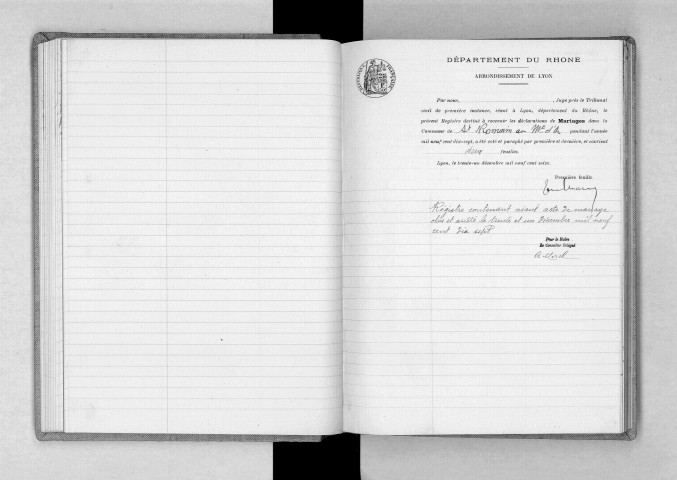 DÉPARTEMENT DU RHONE
ARRONDISSEMENT DE LYON
RÉPUBLIQUE FRANÇAISE
Par nous, , Juge près le Tribunal
civil de première instance, séant à Lyon, département du Rhône, le
présent Registre destiné à recevoir les déclarations de Mariages dans la
Commune de St Romain au Mt d'Or pendant l'année
mil neuf cent dix-sept, a été coté et paraphé par première et dernière, et contient
deux feuilles.
Lyon, le trente-un décembre mil neuf cent seize.
Première feuille
Registre contenant néant acte de mariage
clos et arrêté le trente et un Décembre mil neuf
cent dix sept
Pour le Maire
Le Conseiller Délégué